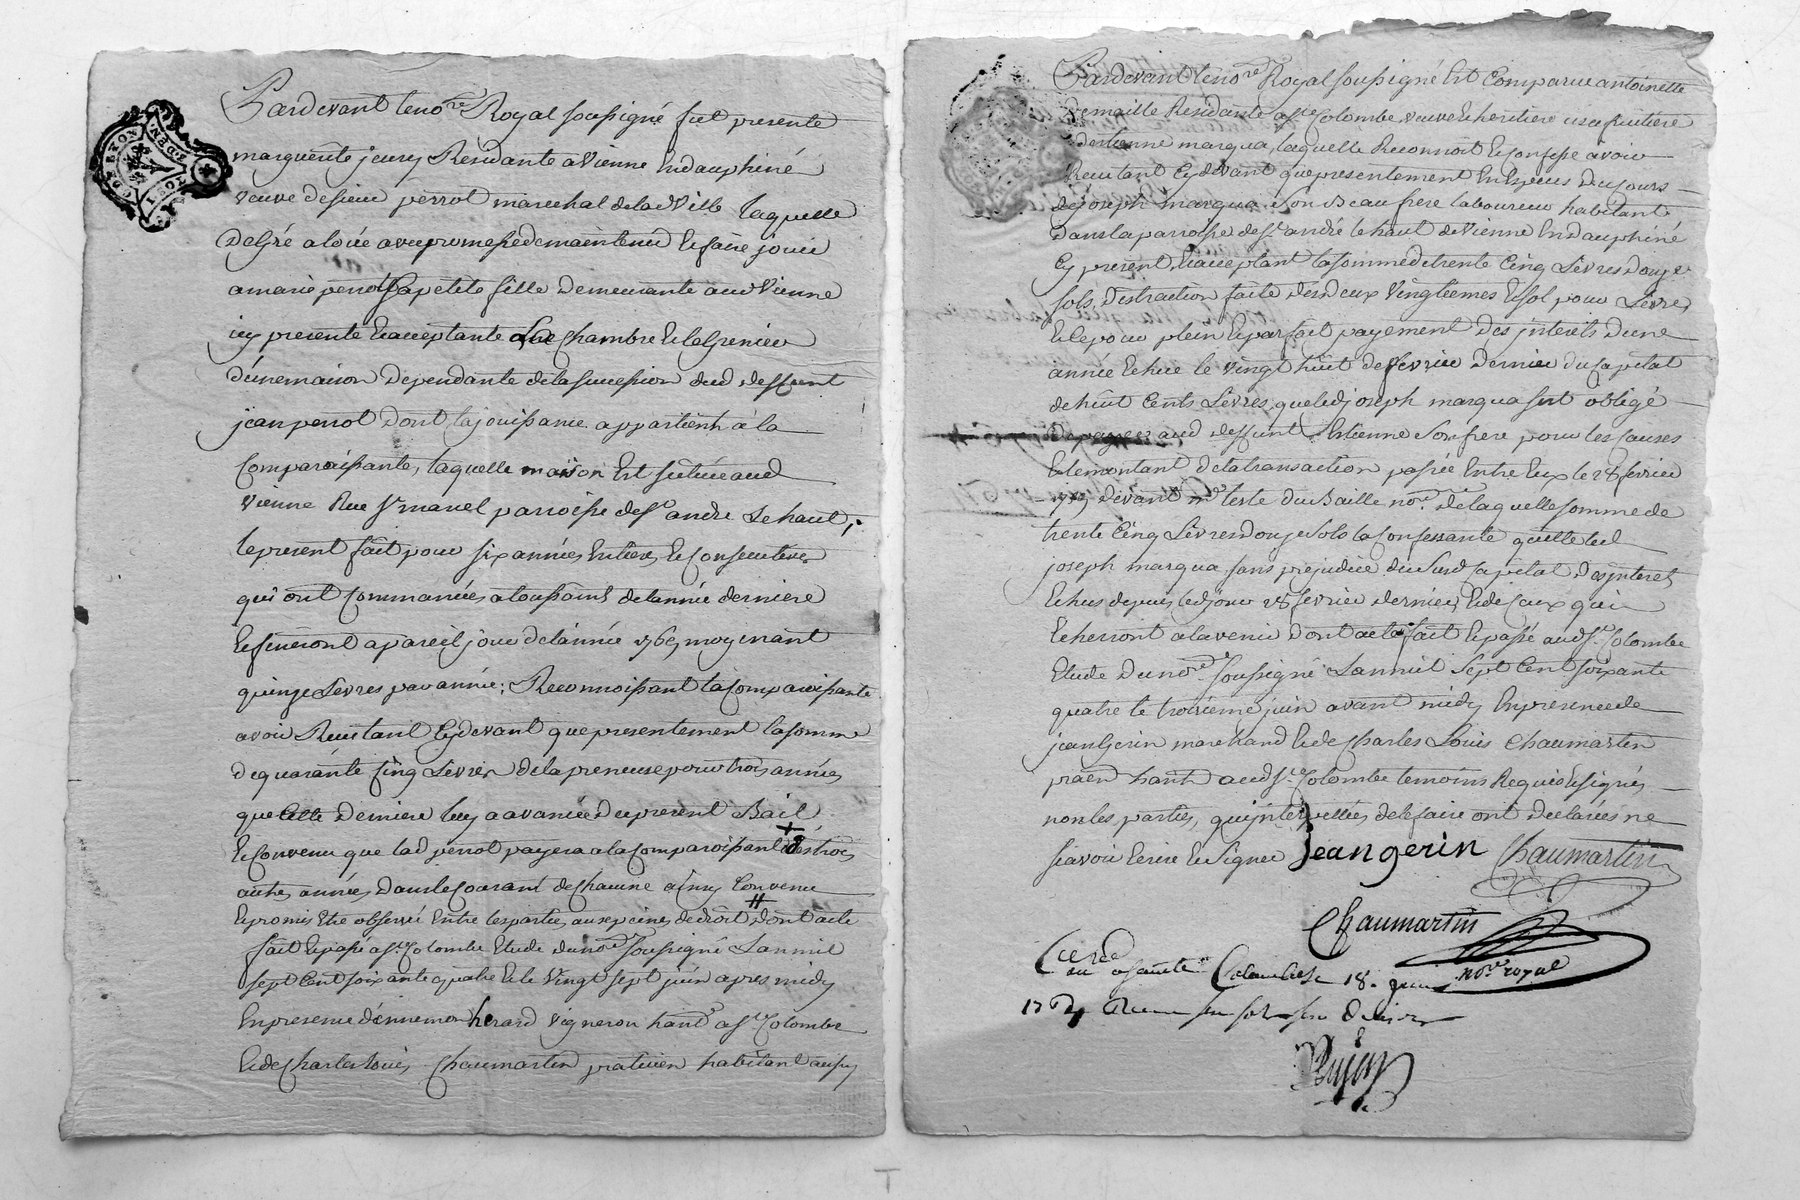 Pardevant le nore Royal soussigné fut presente
marguerite jeury Residante a Vienne En dauphiné
veuve de sieur perrot marechal de lad Ville laquelle
De Gré a loüé avec promesse de maintenir Et faire jouir
a marie perrot Sa petite fille Demeurante aud Vienne
icy presente Et acceptante La Chambre Et le Grenier
d'une maison Dependante de la succession dud deffunt
jean perrot Dont la jouissance appartient à la
Comparaissante, laquelle maison Est situèe aud
Vienne Rue St marcel parroisse de St andré Le haut,
le present fait pour six années Entieres Et Consecutives
qui ont Commancées a toussaint de l'année derniere
Et finiront a pareil jour de l'année 1769 moyenant
quinze Livres par année; Reconnoissant la Comparoissante
avoir Reçu tant Cydevant que presentement la somme
de quarante Cinq Livres de la preneuse pour trois années
que Cette Derniere luy a avancée Du present Bail
Et Convenu que lad perrot payera a la Comparoissante les trois
autres années Dans le Courant de Chacune ainsy Convenu
Et promis Etre observé Entre les parties aux peines de droit Dont acte
fait Et passé a Ste Colombe Etude du nore soussigné L'an mil
sept Cent soixante quatre Et le Vingt sept juin apres midy
En presence d'ennemon herard Vigneron hant a Ste Colombe
Et de Charles Louis Chaumartin praticien habitant aussy
Pardevant le nore Royal soussigné Est Comparue antoinette
Demaille Residante a Ste Colombe, veuve Et heritiere usufruitiere
d'estienne marqua, laquelle Reconnoit Et Confesse avoir
Reçu tant Cydevant que presentement En Especes Du Cours
de joseph marqua Son Beau frere laboureur habitant
Dans la parroisse de St andré le haut de Vienne En dauphiné
Cy present Et acceptant la somme de trente Cinq Livres Douze
sols, Distraction faite Des Deux Vingtiemes Et Sol pour Livre
Et ce pour plein Et parfait payement Des interets D'une
année Echue le Vingt huit de fevrier Dernier du Capital
de huit Cents Livres, que led joseph marqua fut obligé
De payer aud deffunt Estienne Son frere pour les Causes
Et le montant De la transaction passée Entre Eux le 28 fevrier
devant me teste Du Baille nore. De laquelle somme de
trente Cinq Livres Douze Sols la Confessante quitte led
joseph marqua sans prejudice Du Susd Capital Des interets
Echus depuis led jour 28 fevrier dernier, Et de Ceux qui
Echerront a l'avenir Dont acte fait Et passé aud Ste Colombe
Etude Du nore soussigné L'an mil Sept Cent Soixante
quatre le troisieme juin avant midy En presence de
jean Gerin marchand Et de Charles Louis Chaumartin
praen hants aud Ste Colombe temoins Requis Et signés
non les parties, qui interpellées de le faire ont Declarées ne
sçavoir Ecrire Et Signer Jean gerin Chaumartin
Chaumartin
nore royal
Cce rée
au a sainte Colombe Le 18. juin